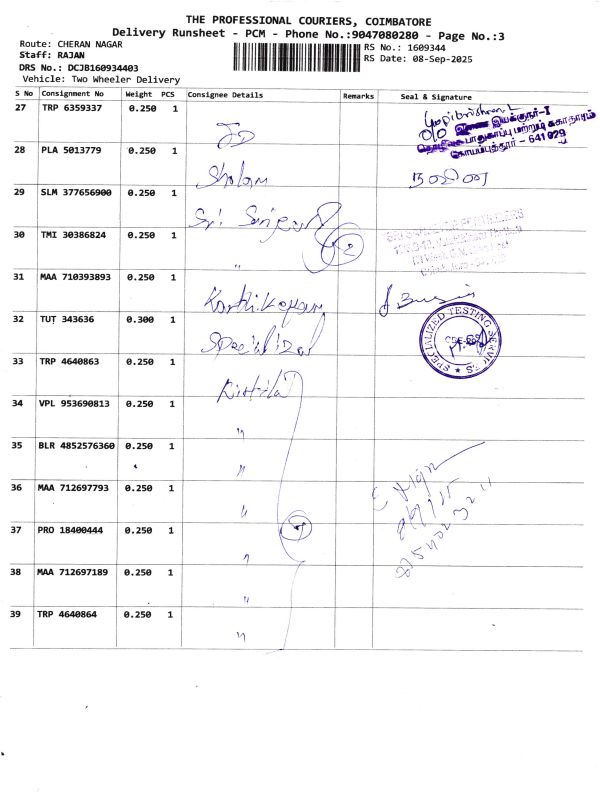 THE PROFESSIONAL COURIERS, COIMBATORE
Delivery Runsheet - PCM - Phone No.:9047080280 - Page No.:3
Route: CHERAN NAGAR
RS No.: 1609344
Staff: RAJAN
RS Date: 08-Sep-2025
DRS No.: DCJB160934403
Vehicle: Two Wheeler Delivery
S No Consignment No Weight PCS Consignee Details Remarks Seal & Signature
27 TRP 6359337 0.250 1 JD
இயக்குநர்-I
பாதுகாப்பு மற்றும் சுகாதாரம்
கோயம்புத்தூர் - 641 029
28 PLA 5013779 0.250 1 Sholam
29 SLM 377656900 0.250 1 Sri
30 TMI 30386824 0.250 1 " 2
31 MAA 710393893 0.250 1
32 TUT 343636 0.300 1 Specialized
SPECIALIZED TESTING SERVICES
33 TRP 4640863 0.250 1
34 VPL 953690813 0.250 1 "
35 BLR 4852576360 0.250 1 "
36 MAA 712697793 0.250 1 "
37 PRO 18400444 0.250 1 "
38 MAA 712697189 0.250 1 "
39 TRP 4640864 0.250 1 "